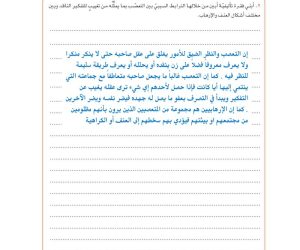 ٢. أبني فقرة تأليفيّة أبيّن من خلالها الترابط السببيّ بين التعصّب بما يمثّله من تغييب للتفكير الناقد، وبين
مختلف أشكال العنف والإرهاب.
إن التعصب والنظر الضيق للأمور يغلق على عقل صاحبه حتى لا ينكر منكرا
ولا يعرف معروفا فضلا على زن ينقده أو يحلله أو يعرف طريقة سليمة
للنظر فيه . كما إن التعصب غالبا ما يجعل صاحبه متعاطفا مع جماعته التي
ينتمي إليها أيا كانت فإذا حصل لأحدهم إي شيء ترى عقله يغيب عن
التفكير ويبدأ في التصرف بعفو ما يصل له جهده فيضر نفسه ويضر الآخرين
. كما إن الإرهابيين هم مجموعة من المتعصبين الذين يرون بأنهم مظلومين
من مجتمعهم او بيئتهم فيؤدي بهم سخطهم إلى العنف أو الكراهية